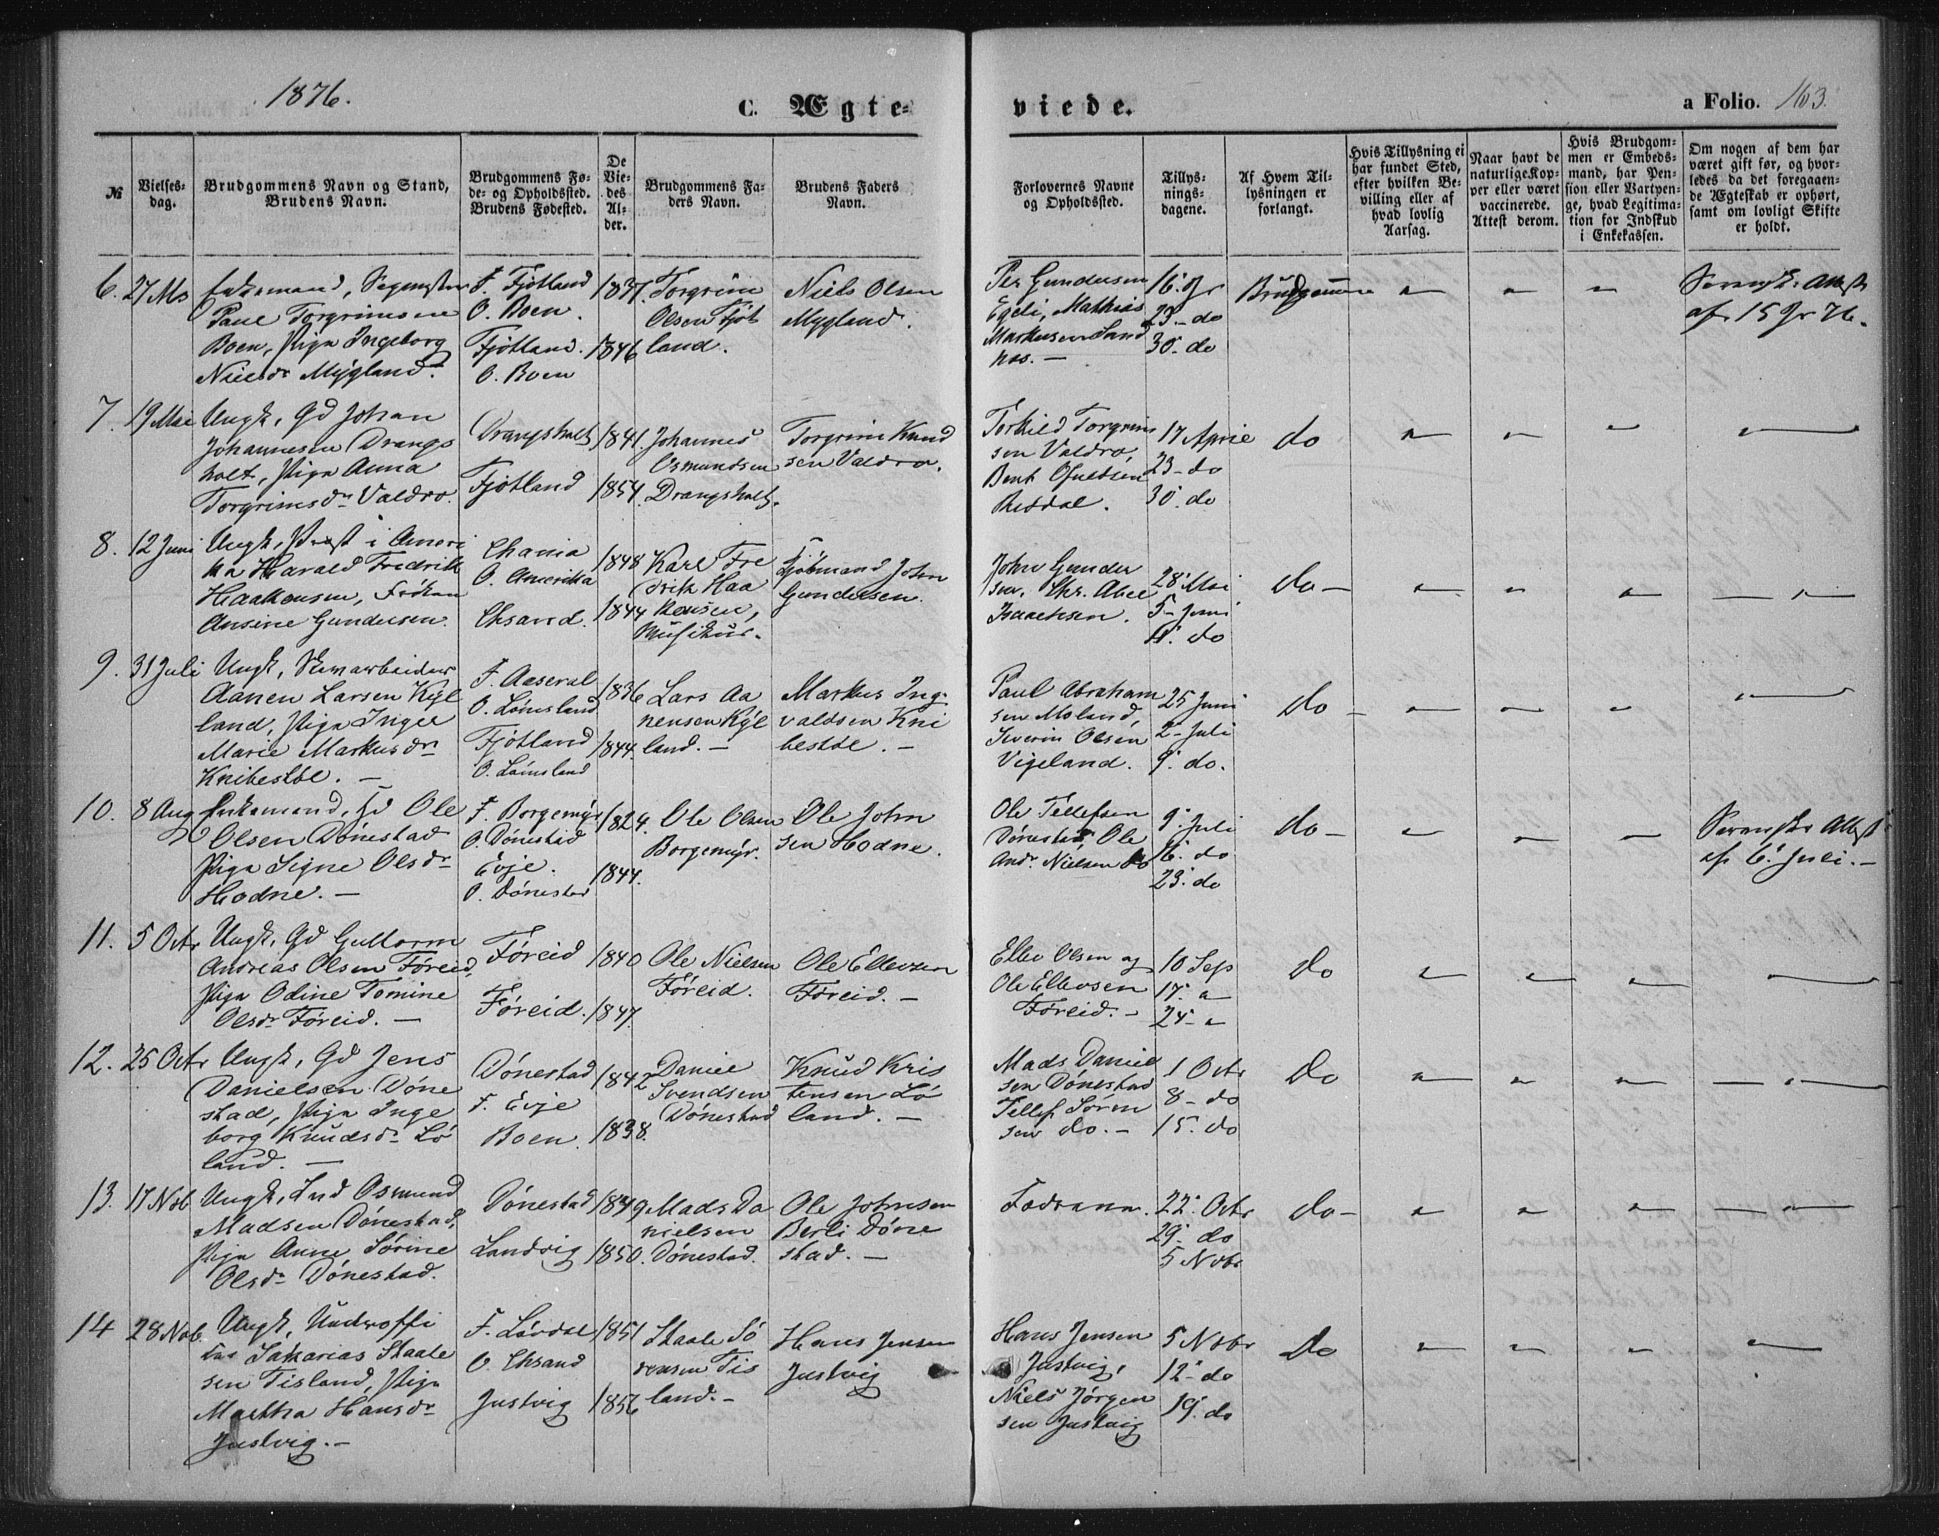 1876.
C. Ægte-
viede.
a Folio. 163.
№
Vielses-
dag.
Brudgommens Navn og Stand,
Brudens Navn.
Brudgommens Fø-
de- og Opholdssted.
Brudens Fødested.
De
Vie-
des
Al-
der.
Brudgommens Fa-
ders Navn.
Brudens Faders
Navn.
Forlovernes Navne
og Opholdssted.
Tillys-
nings-
dagene.
Af Hvem Til-
lysningen er
forlangt.
Hvis Tillysning ei
har fundet Sted,
efter hvilken Be-
villing eller af
hvad lovlig
Aarsag.
Naar havt de
naturlige Kop-
per eller været
vaccinerede.
Attest derom.
Hvis Brudgom-
men er Embeds-
mand, har Pen-
sion eller Vartpen-
ge, hvad Legitima-
tion for Indskud
i Enkekassen.
Om nogen af dem har
været gift før, og hvor-
ledes da det foregaaen-
de Ægteskab er ophørt,
samt om lovligt Skifte
er holdt.
6. 27 Ms
Enkemand,
Paul Torgrimsen
Boen, Pige Ingeborg
Nielsdr Mygland.
F. Fjotland
O. Boen.
Fjotland.
O. Boen
1837
1846
Torgrim
Olsen Fjot
land.
Niels Olsen
Mygland.
Per Gundersen
Egeli, Mathias
Markussen Sand
nes. —
16. Jr
23 - do
30. do
Brudgommen
" " "
Attest
af 15 Jr 76.
7. 19 Mai
Ungk, Gd Johan
Johannesen Drangs
holt, Pige Anna
Torgrimsdr Valdro.
Drangsholt
Fjotland
1841
1854.
Johannes
Osmundsen
Drangsholt.
Torgrim Knud
sen Valdro.
Torkild Torgrim
sen Valdro,
Bent
17 April
23 - do
30. do
do
" " " —"—
8. 12 Juni
Ungk, Præst i Ameri
ka Harald Fredrik
Haakonsen, Frøken
Ansine Gundersen.
Chania
O. Amerika
Chsand.
1848
1844
Karl Fre
drik Haa
konsen,
Musikus.
Kjøbmand John
Gundersen.
John Gunder
sen, Chr. Abel
Isaachsen.
28. Mai
5 - Juni
11. do
do —
" " " —"—
9. 31 Juli
Ungk, Stenarbeider
Aanen Larsen Kyl
land, Pige Inger
Marie Markusdr
Knibestøl. —
F. Aaseral
O. Lømsland
Fjotland
O. Lømsland
1836
1844.
Lars Aa
nensen Kyl
land. —
Markus Ing
valdsen Kni
bestøl. —
Paul Abraham
sen Moland,
Severin Olsen
Vigeland.
25 Juni
2 - Juli
9. do.
do —
" " " —"—
10. 8 Aug
Enkemand, Gd Ole
Olsen Dønestad
Pige Signe Olsdr
Hodne. —
F. Borgemyr
O. Dønestad
Evje.
O. Dønestad
1824.
1844.
Ole Olsen
Borgemyr.
Ole John
sen Hodne.
Ole Tellefsen
Dønestad, Ole
Andr. Nielsen do
9. Juli
16. do
23. do
do —
" " "
Attest
af 6. Juli. —
11. 5 Octr
Ungk, Gd Guttorm
Andreas Olsen Føreid,
Pige Odine Tomine
Olsdr Føreid. —
Føreid
Føreid.
1840
1847.
Ole Nielsen
Føreid.
Ole Ellevsen
Føreid. —
Ellev Olsen og
Ole Ellevsen
Føreid. —
10 Sep
17. "
24 - "
do
" " " —"—
12. 25 Octr
Ungk, Gd Jens
Danielsen Døne
stad, Pige Inge
borg Knudsdr Lø
land. —
Dønestad
F. Evje
Boen.
1842
1838.
Daniel
Svendsen
Dønestad
Knud Kris
tensen Lø
land. —
Mads Daniel
sen Dønestad
Tellef Søren
sen do. —
1 Octr
8 - do
15. do
do
" " " —"—
13. 17 Nob
Ungk, Osmund
Madsen Dønestad,
Pige Anne Sørine
Olsdr Dønestad.
Dønestad
Landvig
1849
1850.
Mads Da
nielsen
Dønestad.
Ole Johnsen
Berli Døne
stad. —
22. Octr
29. do
5 Nobr
do —
" " " —"—
14 28 Nob
Ungk, Underoffi
Sakarias Staale
sen Tisland, Pige
Martha Hansdr
Justvig. —
F. Løvdal
O. Chsand
Justvig
1851
1856
Staale Sø
rensen Tis
land. —
Hans Jensen
Justvig
Hans Jensen
Justvig,
Niels Jørgen
sen Justvig
5 Nobr
12 - do
19. do
do
" " " —"—